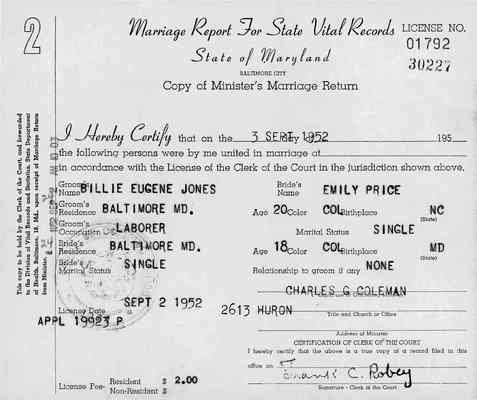 2
Marriage Report For State Vital Records
LICENSE NO.
01792
30227
State of Maryland
BALTIMORE CITY
Copy of Minister's Marriage Return
This copy to be held by the Clerk of the Court, and forwarded
to the Division of Vital Records and Statistics, State Department
of Health, Baltimore, 18, Md., upon receipt of Marriage Return
from Minister.
I Hereby Certify that on the 3 SEPT 1952 195
the following persons were by me united in marriage at
in accordance with the License of the Clerk of the Court in the jurisdiction shown above.
Groom's Name BILLIE EUGENE JONES Bride's Name EMILY PRICE
Groom's Residence BALTIMORE MD. Age 20 Color COL Birthplace NC
(State)
Groom's Occupation LABORER Marital Status SINGLE
Bride's Residence BALTIMORE MD. Age 18 Color COL Birthplace MD
(State)
Bride's Marital Status SINGLE Relationship to groom if any NONE
CHARLES G COLEMAN
SEPT 2 1952 2613 HURON
License Date Title and Church or Office
APPL 19923 P
Address of Minister
CERTIFICATION OF CLERK OF THE COURT
I hereby certify that the above is a true copy of a record filed in this
office on
License Fee- Resident $ 2.00
Non-Resident $
Frank C. Robey
Signature - Clerk of the Court